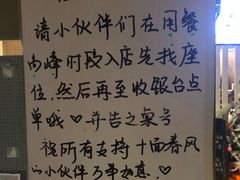 请小伙伴们在用餐
高峰时段入店先找座
位,然后再至收银台点
单哦♡并告之桌号
祝所有支持十面春风
的小伙伴万事如意!♡